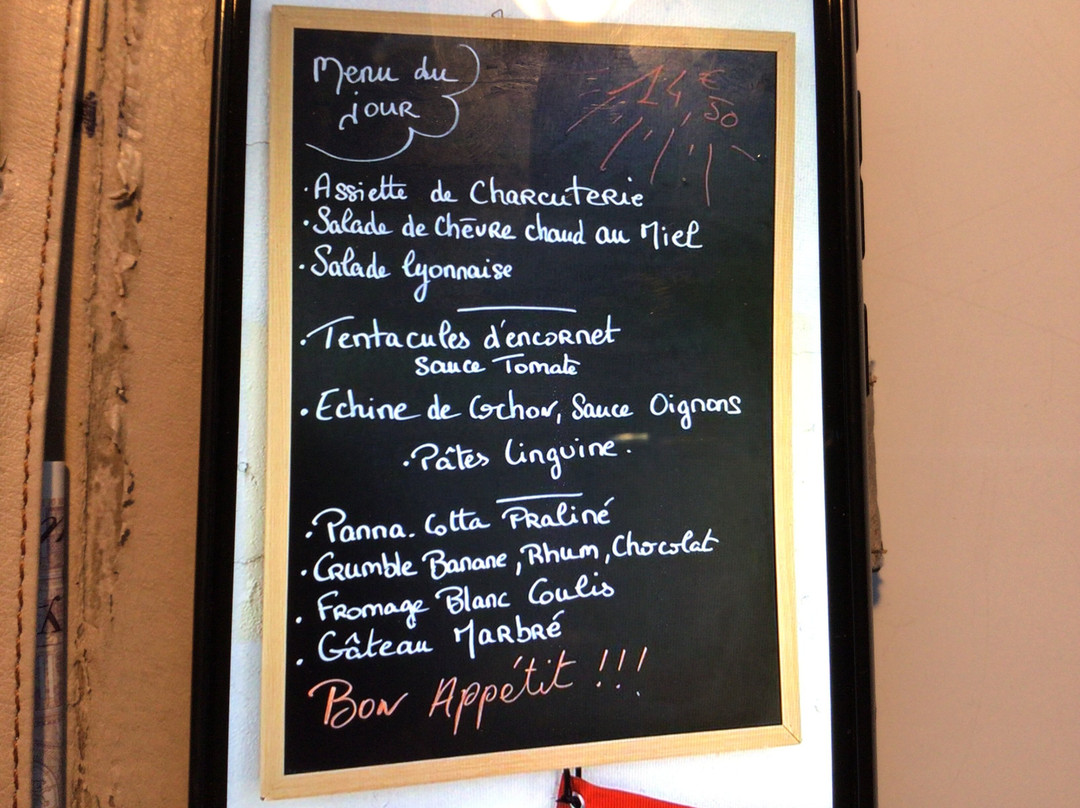 Menu du
jour
14€
,50
· Assiette de Charcuterie
· Salade de Chèvre chaud au Miel
· Salade lyonnaise
· Tentacules d'encornet
Sauce Tomate
· Echine de Cochon, Sauce Oignons
· Pâtes Linguine.
· Panna. Cotta Praliné
· Crumble Banane, Rhum, Chocolat
· Fromage Blanc Coulis
· Gâteau Marbré
Bon Appétit !!!